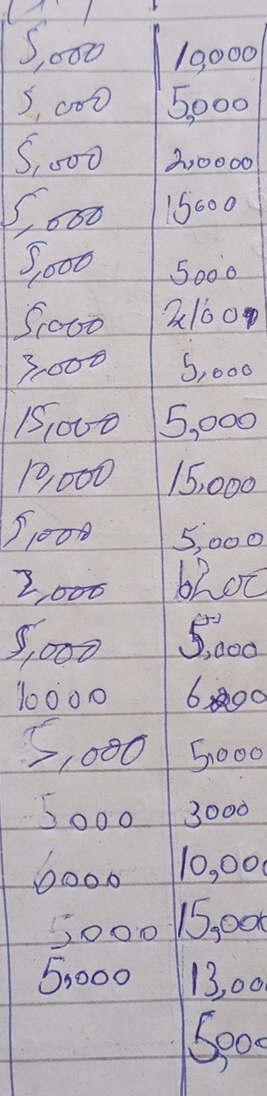 5,000 10,000
5,000 5,000
5,000 20000
5,000 15000
5,000 5000
5,000
3,000 5,000
15,000 5,000
10,000 15,000
5,000 5,000
2,000 6200
5,000 5,000
10000
5,000 5,000
5000 3000
6000 10,000
5000 15,000
5,000 13,000
5,000